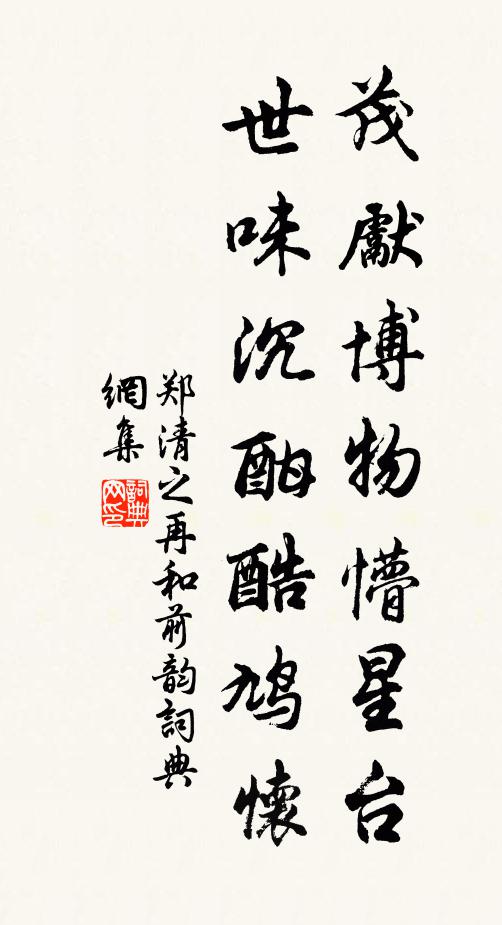 茂獻博物懵星台
世味沉酣酷鸠懷
郑清之再和前韵詞典
網集
詞典网印